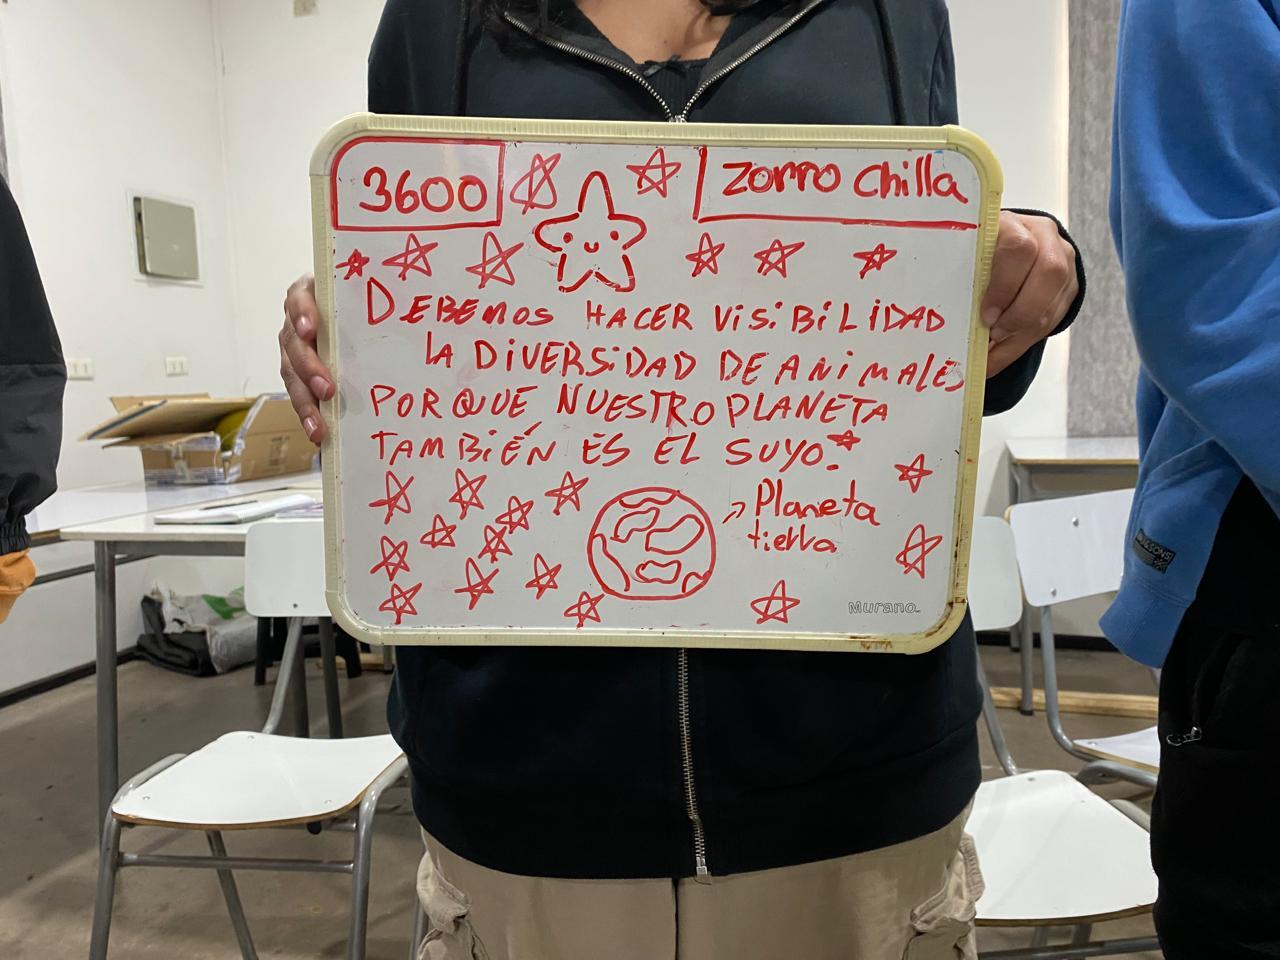 3600
zorro chilla
DEBEMOS HACER VISIBILIDAD
LA DIVERSIDAD DE ANIMALES
PORQUE NUESTRO PLANETA
TAMBIÉN ES EL SUYO.
Planeta
tierra
Murano